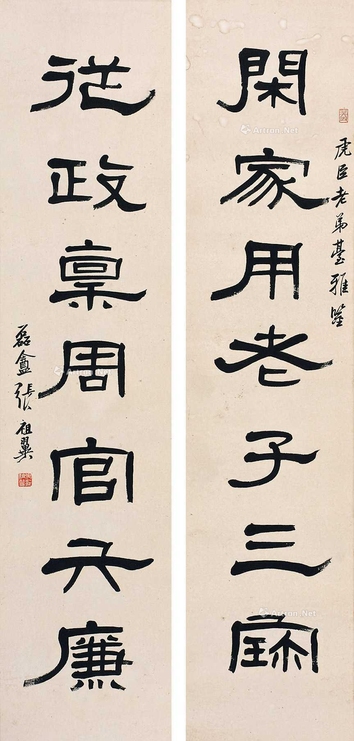 虎臣老弟臺雅鑒
閑家用老子三寶
從政稟周官六廉
磊盦張祖翼
Artron.Net